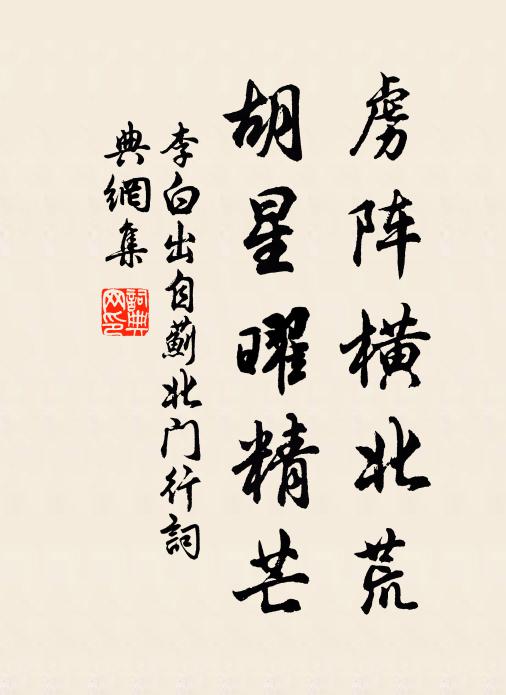 虏阵横北荒
胡星曜精芒
李白出自蓟北门行詞
典網集
詞典
网印